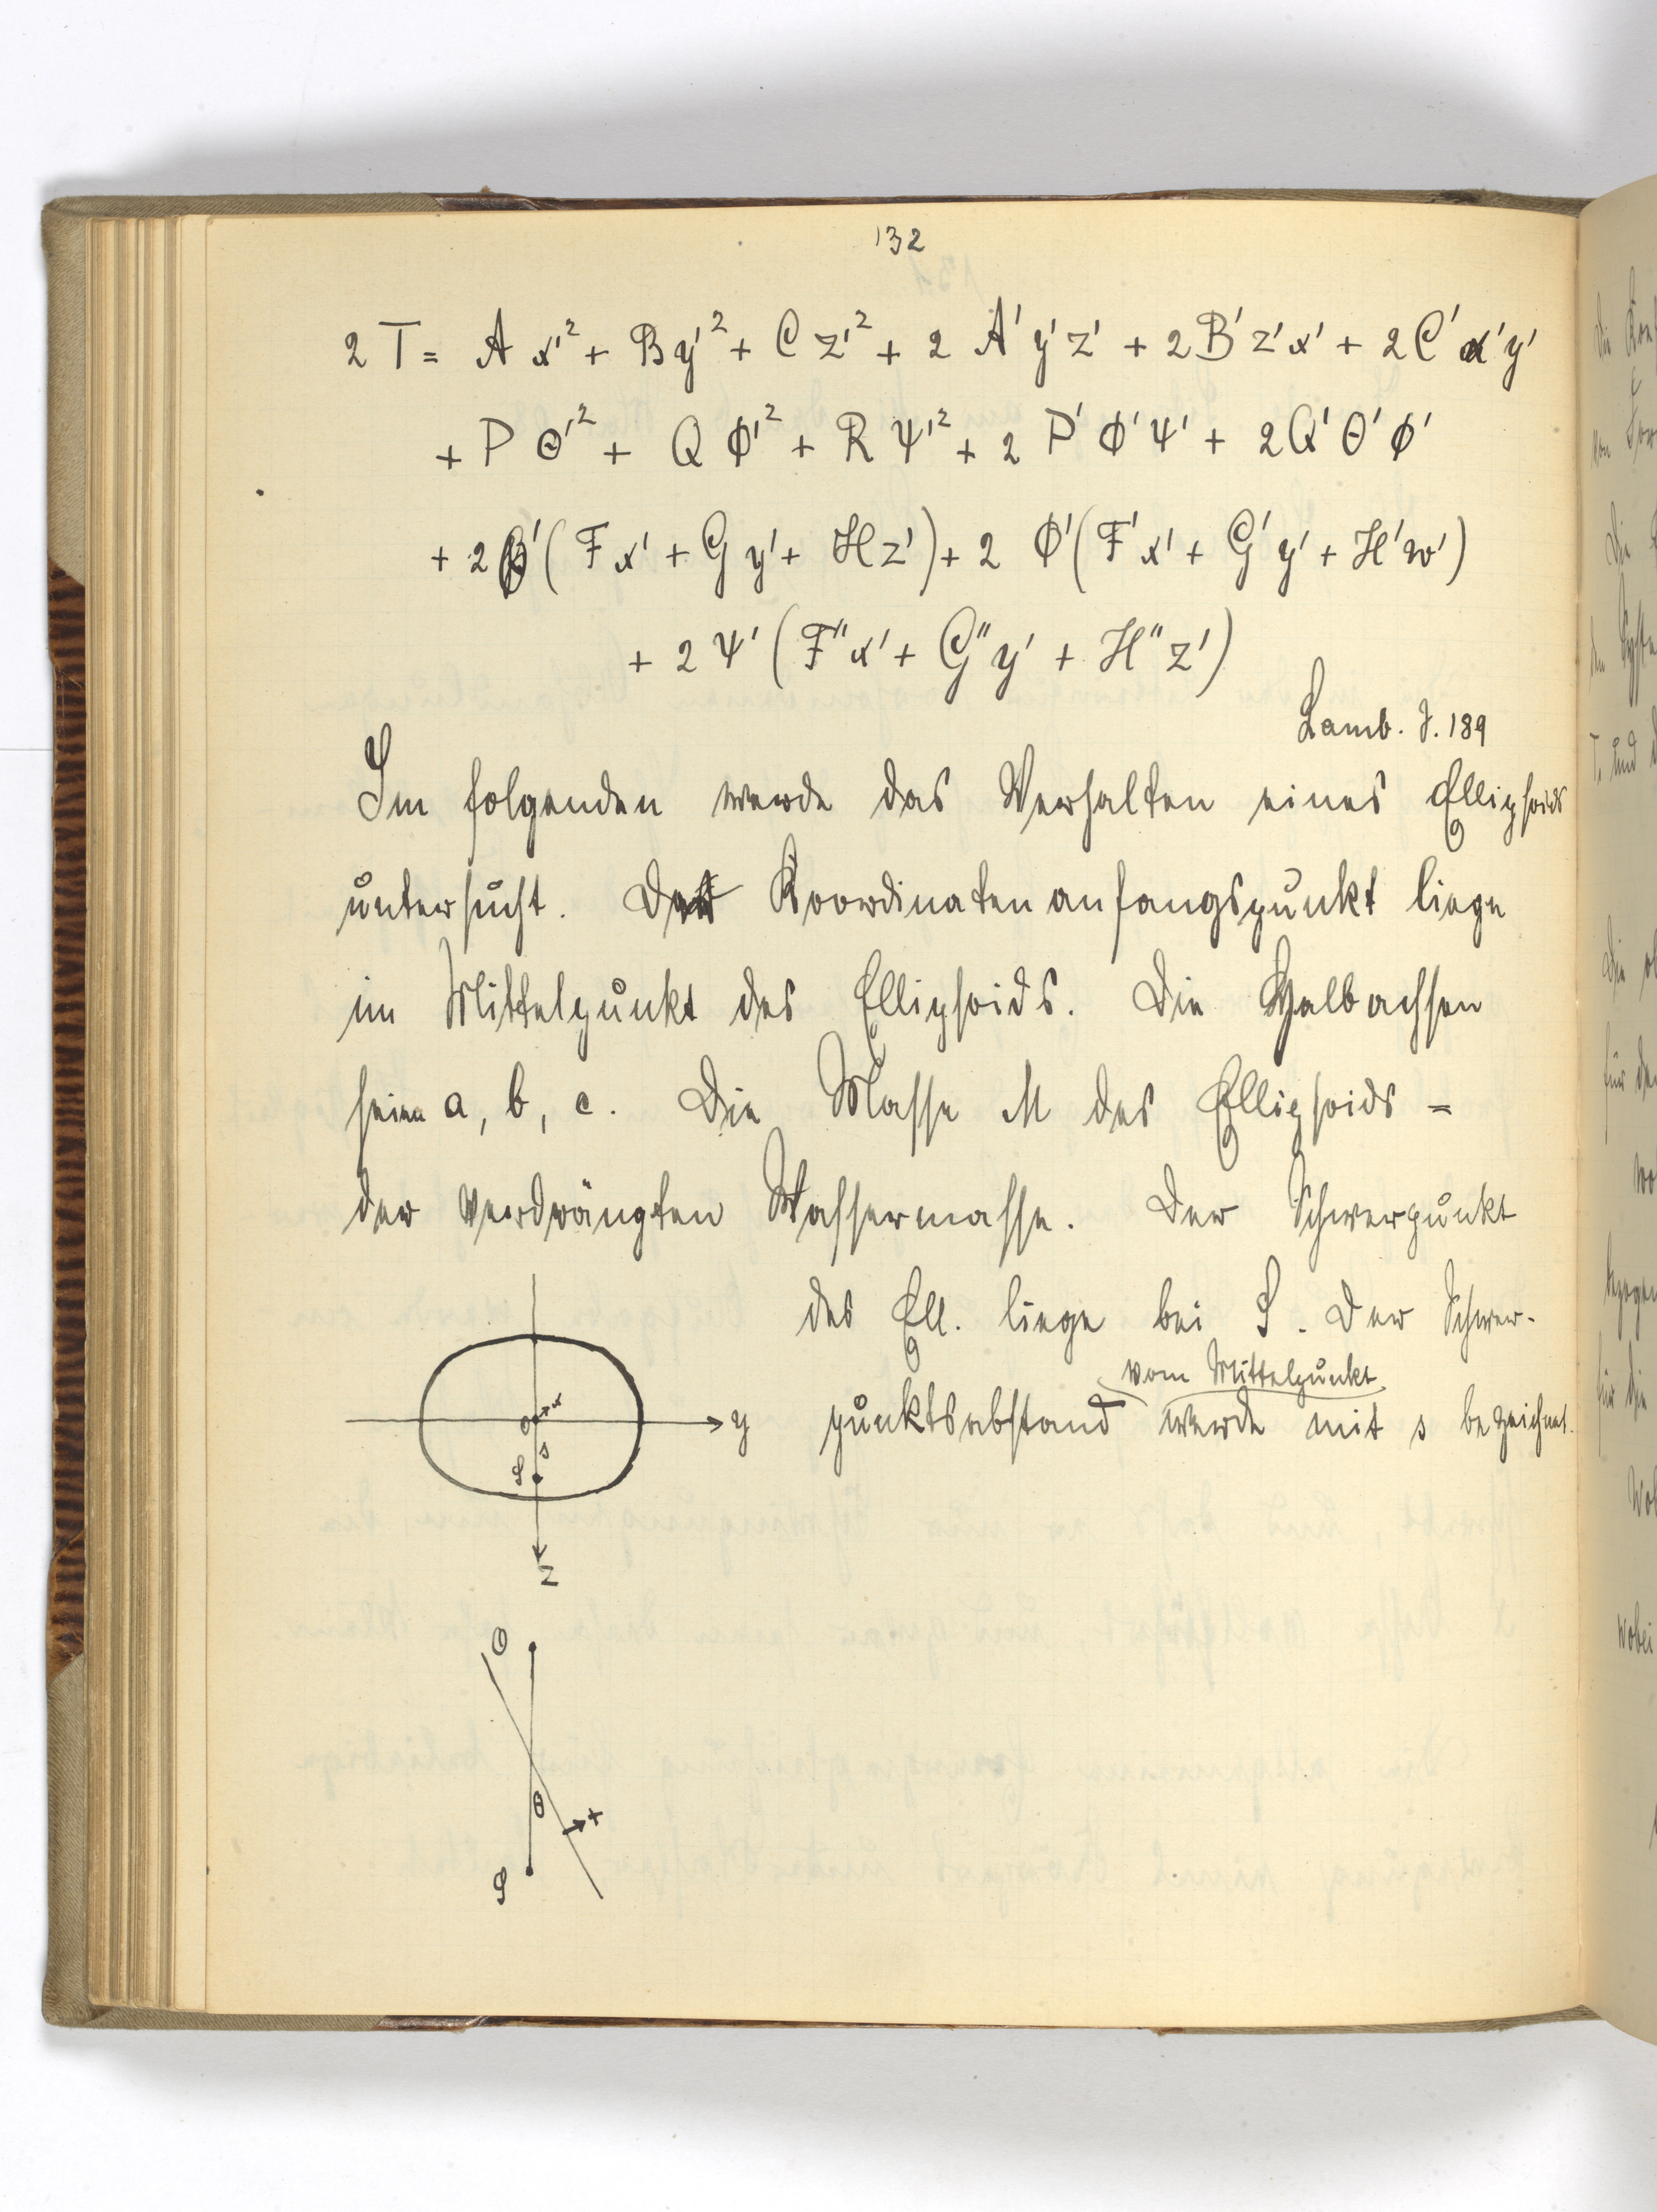 132
2 T = A x'² + B y'² + C z'² + 2 A' y' z' + 2 B' z' x' + 2 C' x' y'
+ P Θ'² + Q Φ'² + R Ψ'² + 2 P' Φ' Ψ' + 2 Q' Θ' Φ'
+ 2 ( F x' + G y' + H z' ) + 2 Φ' ( F' x' + G' y' + H' w' )
+ 2 Ψ' ( F'' x' + G'' y' + H'' z' )
Lamb. S. 189
Im folgenden werde das Verhalten eines Ellipsoids
untersucht. Der Koordinatenanfangspunkt liege
im Mittelpunkt des Ellipsoids. Die Halbachsen
seien a, b, c. Die Masse M des Ellipsoids =
der verdrängten Wassermasse. Der Schwerpunkt
des Ell. liege bei S. Der Schwer-
vom Mittelpunkt
punktsabstand werde mit s bezeichnet.
O x
y
s
S
z
O
θ
+
S